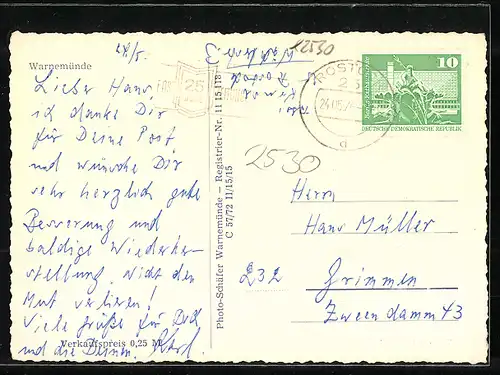 Warnemünde
24/5.
Lieber Hans,
ich danke Dir
für Deine Post,
und wünsche Dir
sehr herzlich gute
Besserung und
baldige Wiederher-
stellung. Nicht den
Mut verlieren!
Viele Grüße für Dich
und die Deinen.
Verkaufspreis 0,25 M
Photo-Schäfer Warnemünde — Registrier-Nr. 11 15 118
C 57/72 II/15/15
25
x2530
2530
ROSTOCK
25
d
10
DEUTSCHE DEMOKRATISCHE REPUBLIK
Herrn
Hans Müller
232 Grimmen
Zweendamm 43